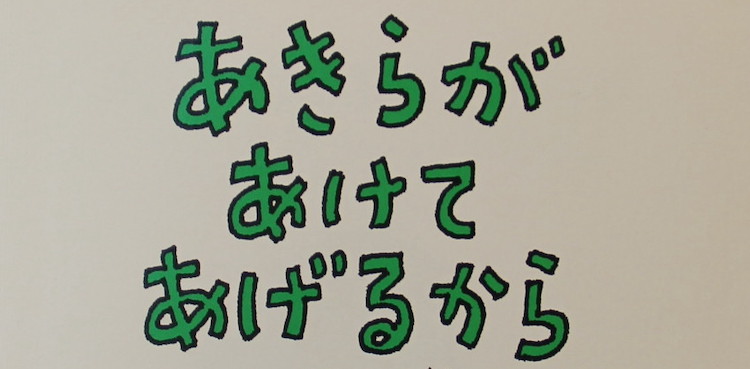 あきらが
あけて
あげるから